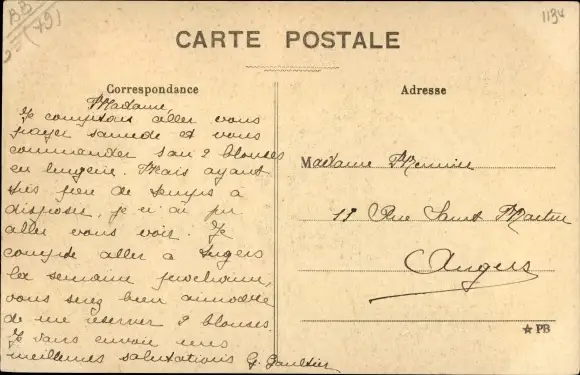 BB
(79)
1134
CARTE POSTALE
Correspondance
Adresse
Madame
Je comptais aller vous
payer samedi et vous
commander 1 ou 2 blouses
en lingerie. Mais ayant
très peu de temps à
disposer, je n'ai pu
aller vous voir. Je
compte aller à Angers
la semaine prochaine,
vous serez bien aimable
de me réserver 2 blouses.
Je vous envoie mes
meilleures salutations G. Gaultier
Madame
17 Rue Saint Martin
Angers
☆ PB